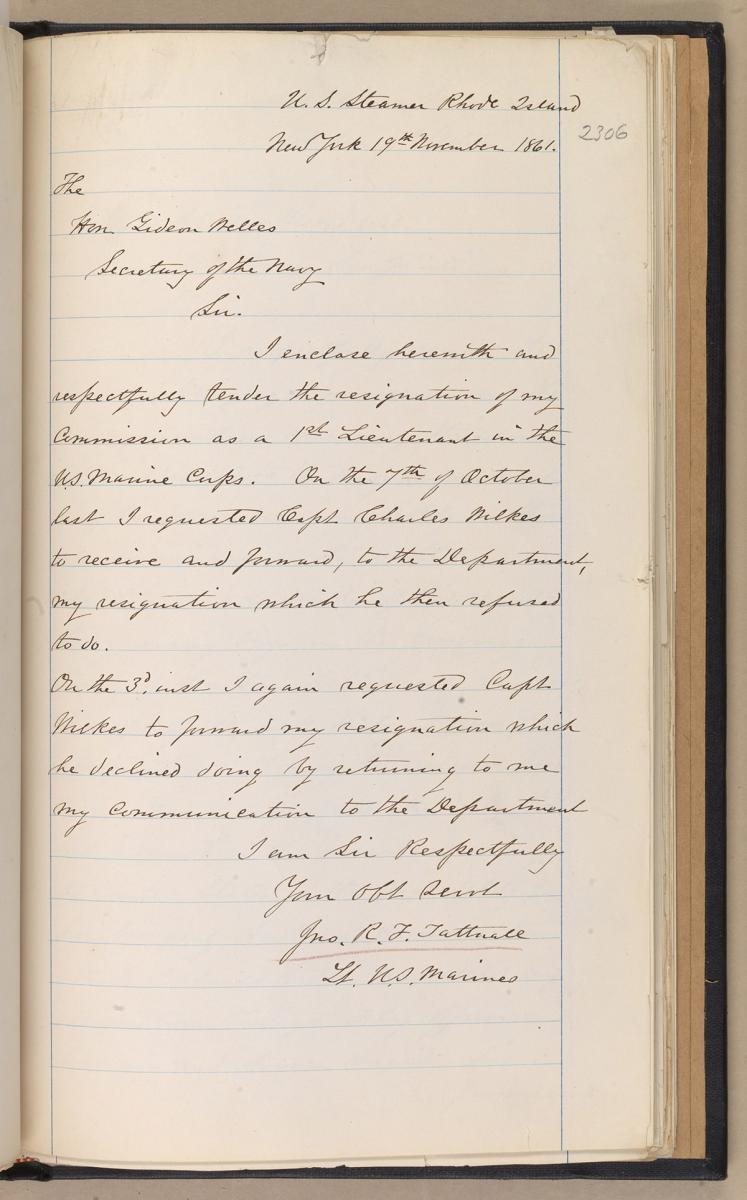 U. S. Steamer Rhode Island
2306
New York 19th November 1861.
The
Hon Gideon Welles
Secretary of the Navy
Sir.
I enclose herewith and
respectfully tender the resignation of my
Commission as a 1st Lieutenant in the
U.S. Marine Corps. On the 7th of October
last I requested Capt Charles Wilkes
to receive and forward, to the Department,
my resignation which he then refused
to do.
On the 3d. inst I again requested Capt
Wilkes to forward my resignation which
he declined doing by returning to me
my communication to the Department
I am Sir Respectfully
Your Obt Servt
Jno. R. F. Tattnall
Lt. U.S. Marines